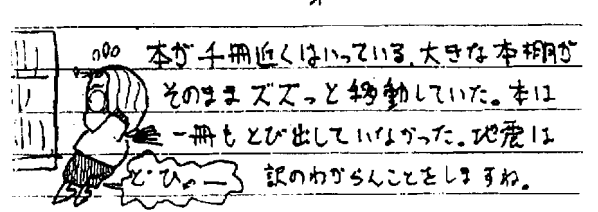 本が千冊近くはいっている、大きな本棚が
そのままズズっと移動していた。本は
一冊もとび出していなかった。地震は
訳のわからんことをしますね。
どひゃー